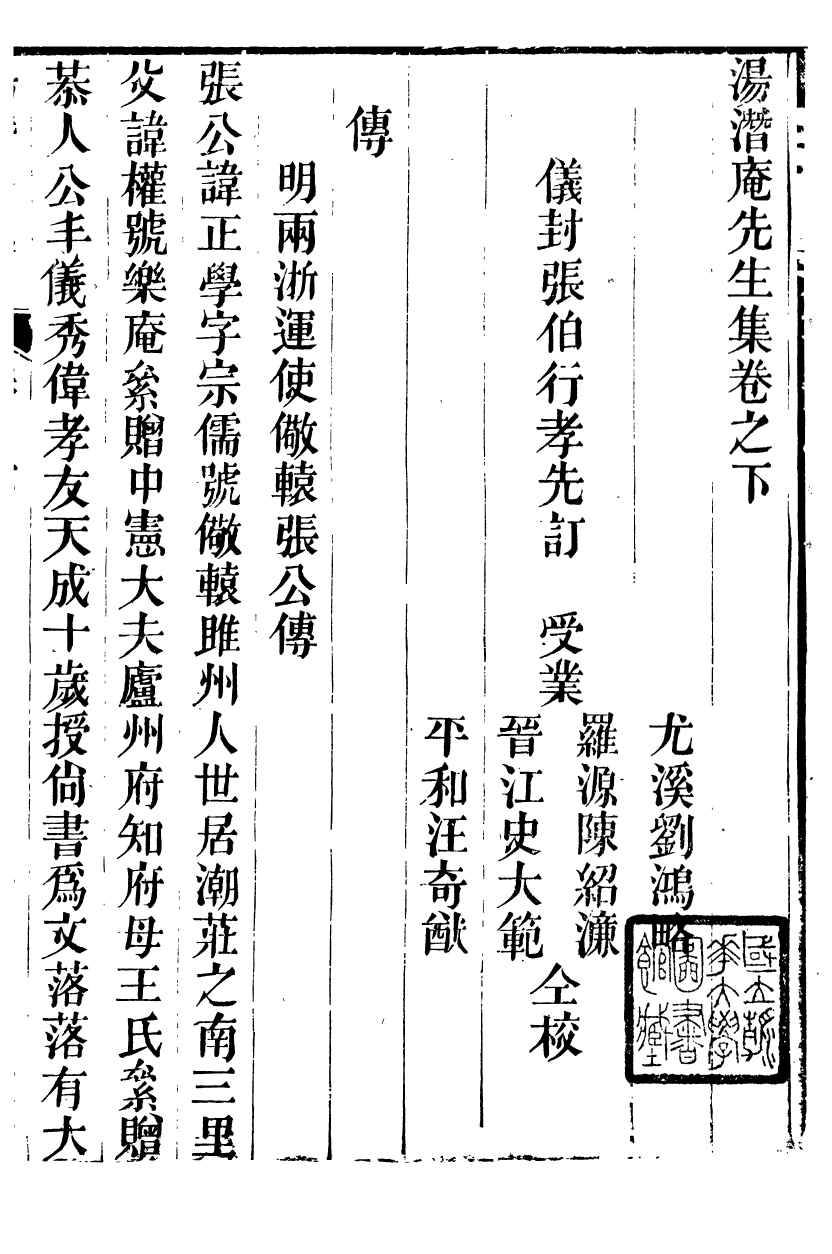 湯潛庵先生集卷之下
儀封張伯行孝先訂
受業
尤溪劉鴻略
羅源陳紹濂
晉江史大範
平和汪奇猷
仝校
傳
明兩浙運使儆轅張公傳
張公諱正學字宗儒號儆轅睢州人世居潮莊之南三里
父諱權號樂庵絫贈中憲大夫廬州府知府母王氏絫贈
恭人公丰儀秀偉孝友天成十歲授尙書爲文落落有大
國立清華大學圖書館藏